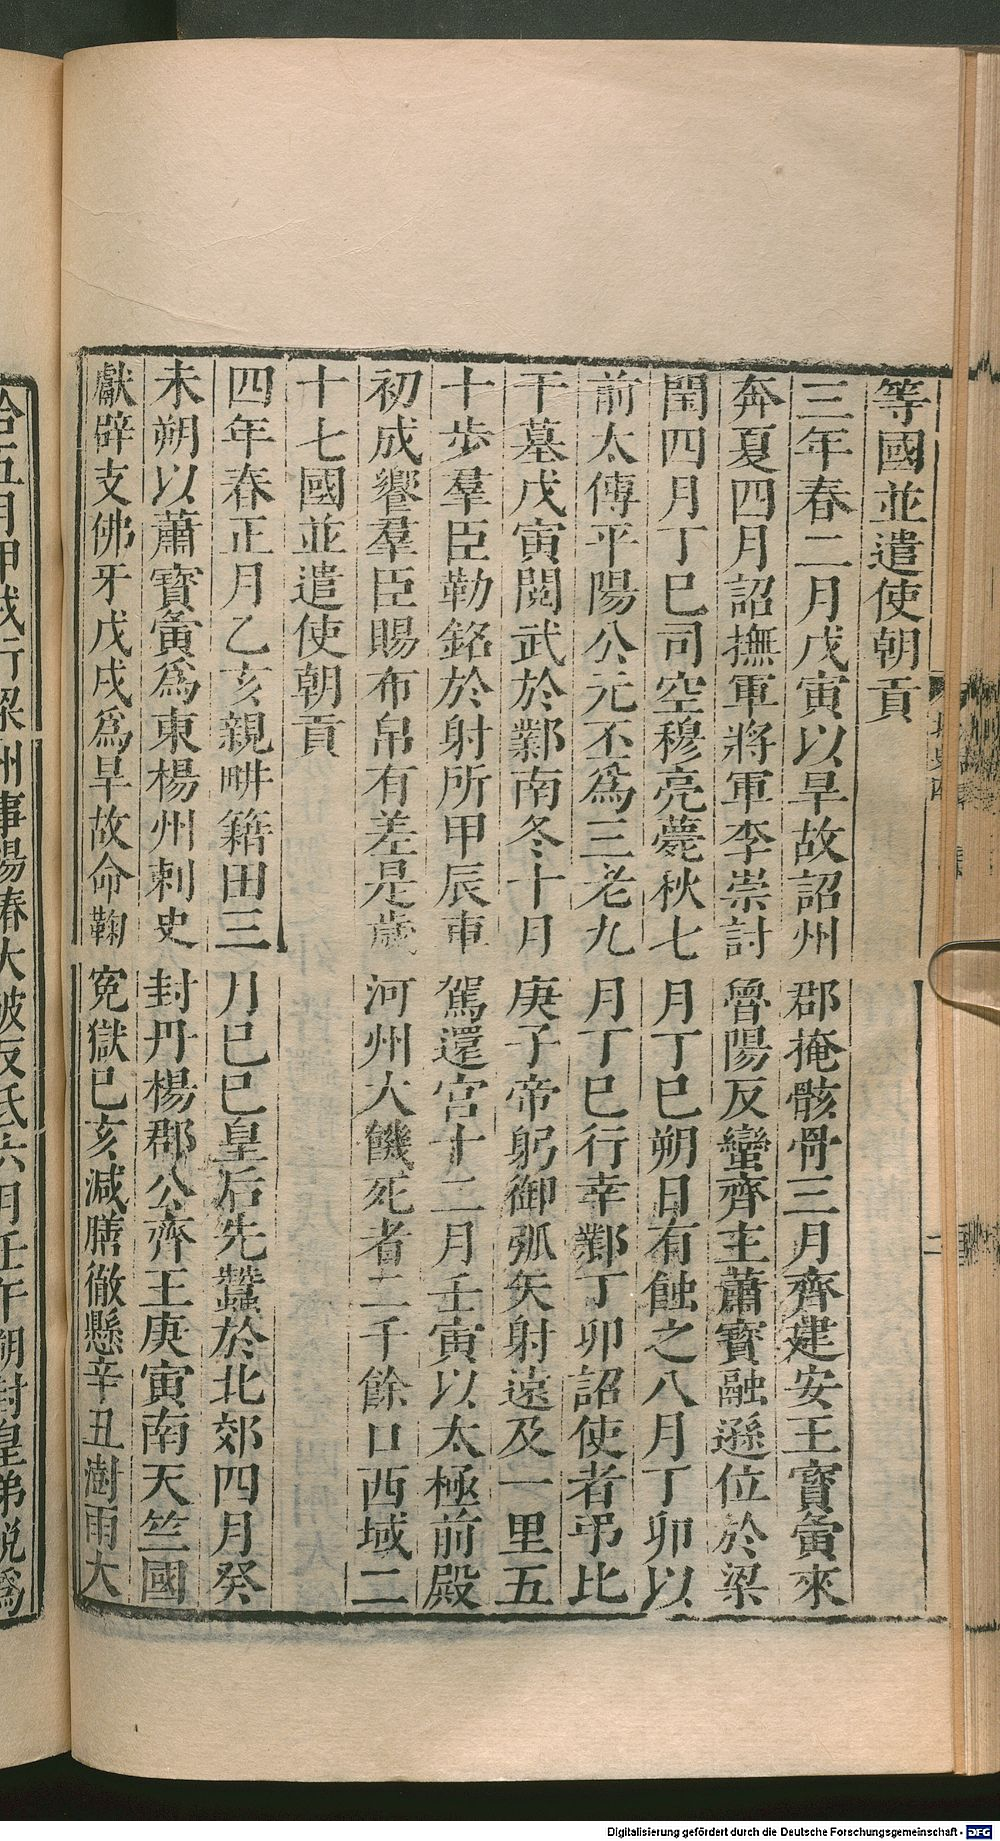 等國並遣使朝貢
三年春二月戊寅以旱故詔州郡掩骸骨三月齊建安王寳夤來
奔夏四月詔撫軍將軍李崇討魯陽反蠻齊主蕭寳融遜位於梁
閏四月丁巳司空穆亮薨秋七月丁巳朔日有蝕之八月丁卯以
前太傅平陽公元丕爲三老九月丁巳行幸鄴丁卯詔使者弔比
干墓戊寅閱武於鄴南冬十月庚子帝躬御弧矢射遠及一里五
十歩羣臣勒銘於射所甲辰車駕還宮十二月壬寅以太極前殿
初成饗羣臣賜布帛有差是歲河州大饑死者二千餘口西域二
十七國並遣使朝貢
四年春正月乙亥親畊籍田三月巳巳皇后先蠶於北郊四月癸
未朔以蕭寳夤爲東楊州刺史封丹楊郡公齊王庚寅南天竺國
獻辟支佛牙戊戌爲旱故命鞫寃獄巳亥減膳徹懸辛丑澍雨大
五月甲戌行梁州事楊椿大破反氐六月壬午朔封皇弟悅爲
Digitalisierung gefördert durch die Deutsche Forschungsgemeinschaft - DFG